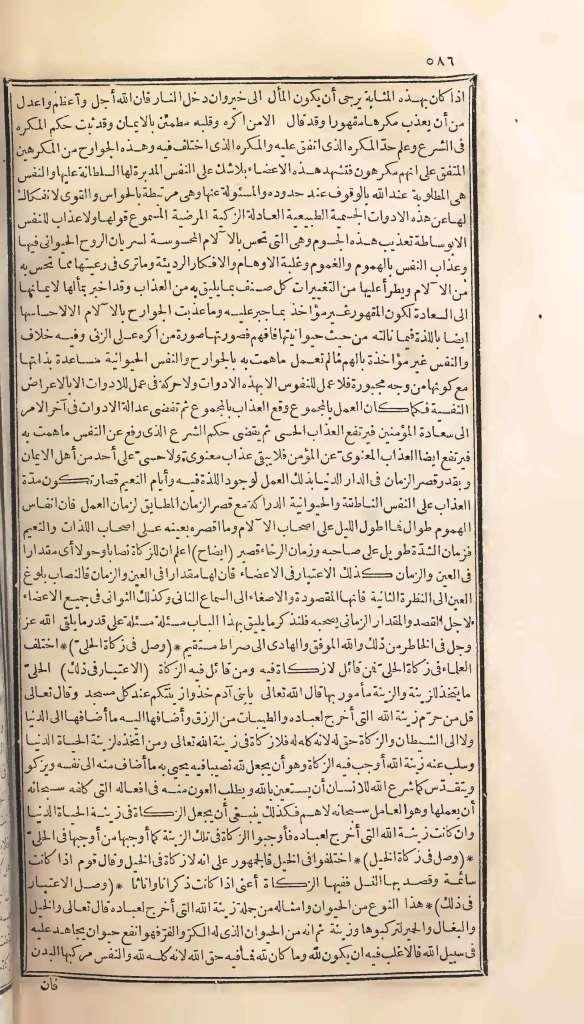 ٥٨٦
اذا كان بهذه المثابة يرجى أن يكون المآل الى خير وان دخل النار فان الله أجل وأعظم وأعدل
من أن يعذب مكرها مقهورا وقد قال الا من اكره وقلبه مطمئن بالايمان وقد ثبت حكم المكره
فى الشرع وعلم حدّ المكره الذى اتفق عليه والمكره الذى اختلف فيه وهذه الجوارح من المكرهين
المتفق على انهم مكرهون فتشهد هذه الاعضاء بلاشك على النفس المدبرة لها السلطانة عليها والنفس
هى المطلوبة عند الله بالوقوف عند حدوده والمسئولة عنها وهى مرتبطة بالحواس والقوى لا انفكاك
لها عن هذه الادوات الجسمية الطبيعية العادلة الزكية المرضية المسموع قولها ولا عذاب للنفس
الا بوساطة تعذيب هذه الجسوم وهى التى تحس بالآلام المحسوسة لسريان الروح الحيوانى فيها
وعذاب النفس بالهموم والغموم وغلبة الاوهام والافكار الرديئة وماترى فى رعيتها مما تحس به
من الآلام ويطرأ عليها من التغييرات كل صنف بما يليق به من العذاب وقد اخبر بمآلها لايمانها
الى السعادة لكون المقهور غير مؤاخذ بما جبر عليه وما عذبت الجوارح بالآلام الا لاحساسها
ايضا باللذة فيما نالته من حيث حيوانيتها فافهم فصورتها صورة من اكره على الزنى وفيه خلاف
والنفس غير مؤاخذة بالهم مالم تعمل ما همت به بالجوارح والنفس الحيوانية مساعدة بذاتها
مع كونها من وجه مجبورة فلا عمل للنفوس الا بهذه الادوات ولا حركة فى عمل للادوات الا بالاعراض
النفسية فكما كان العمل بالمجموع وقع العذاب بالمجموع ثم تفضى عدالة الادوات فى آخر الامر
الى سعادة المؤمنين فيرتفع العذاب الحسى ثم يقضى حكم الشرع الذى رفع عن النفس ما همت به
فيرتفع ايضا العذاب المعنوى عن المؤمن فلا يبقى عذاب معنوى ولا حسى على أحد من أهل الايمان
وبقدر قصر الزمان فى الدار الدنيا بذلك العمل لوجود اللذة فيه وأيام النعيم قصار تكون مدة
العذاب على النفس الناطقة والحيوانية الدراكة مع قصر الزمان المطابق لزمان العمل فان انفاس
الهموم طوال فما اطول الليل على اصحاب الآلام وما اقصره بعينه على اصحاب اللذات والنعيم
فزمان الشدّة طويل على صاحبه وزمان الرخاء قصير (ايضاح) اعلم ان للزكاة نصابا وحولا أى مقدارا
فى العين والزمان كذلك الاعتبار فى الاعضاء فان لها مقدارا فى العين والزمان فالنصاب بلوغ
العين الى النظرة الثانية فانها المقصودة والاصغاء الى السماع الثانى وكذلك الثوانى فى جميع الاعضاء
لاجل القصد والمقدار الزمانى يصحبه فلنذكر ما يليق بهذا الباب مسئلة مسئلة على قدر ما يلقى الله عز
وجل فى الخاطر من ذلك والله الموفق والهادى الى صراط مستقيم * (وصل فى زكاة الحلىّ) * اختلف
العلماء فى زكاة الحلىّ فمن قائل لا زكاة فيه ومن قائل فيه الزكاة (الاعتبار فى ذلك) الحلىّ
ما يتخذ للزينة والزينة مأمور بها قال الله تعالى يابنى آدم خذوا زينتكم عند كل مسجد وقال تعالى
قل من حرّم زينة الله التى أخرج لعباده والطيبات من الرزق وأضافها اليه ما أضافها الى الدنيا
ولا الى الشيطان والزكاة حق لله لانه كله لله فلا زكاة فى زينة الله تعالى ومن اتخذه لزينة الحياة الدنيا
وسلب عنه زينة الله أوجب فيه الزكاة وهو أن يجعل لله نصيبا فيه يحيى به ما أضاف منه الى نفسه ويزكو
ويتقدّس كما شرع الله للانسان أن يستعين بالله ويطلب العون منه فى افعاله التى كلفه سبحانه
أن يعملها وهو العامل سبحانه لا هم فكذلك ينبغى أن يجعل الزكاة فى زينة الحياة الدنيا
وان كانت زينة الله التى أخرج لعباده فأوجبوا الزكاة فى تلك الزينة كما أوجبها من أوجبها فى الحلىّ
* (وصل فى زكاة الخيل) * اختلفوا فى الخيل فالجمهور على انه لا زكاة فى الخيل وقال قوم اذا كانت
سائمة وقصد بها النسل ففيها الزكاة أعنى اذا كانت ذكرانا واناثا * (وصل الاعتبار
فى ذلك) * هذا النوع من الحيوان وامثاله من جملة زينة الله التى أخرج لعباده قال تعالى والخيل
والبغال والحمير لتركبوها وزينة ثم انه من الحيوان الذى له الكرّ والفرّ فهو انفع حيوان يجاهد عليه
فى سبيل الله فالاغلب فيه ان يكون لله وما كان لله فما فيه حق الله لانه كله لله والنفس مركبها البدن
فان